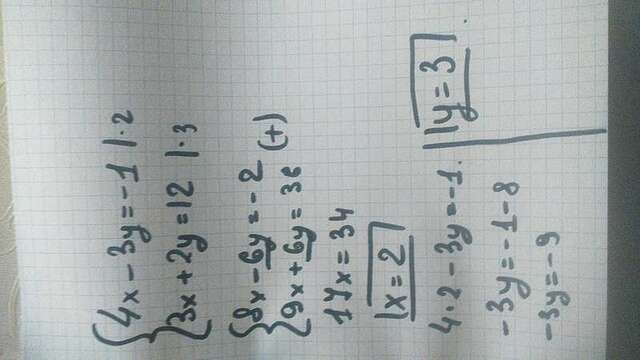 4x - 3y = -1 | · 2
3x + 2y = 12 | · 3
8x - 6y = - 2
9x + 6y = 36
(+)
17x = 34
x = 2
4 · 2 - 3y = -1.
-3y = -1 - 8
-3y = -9
y = 3